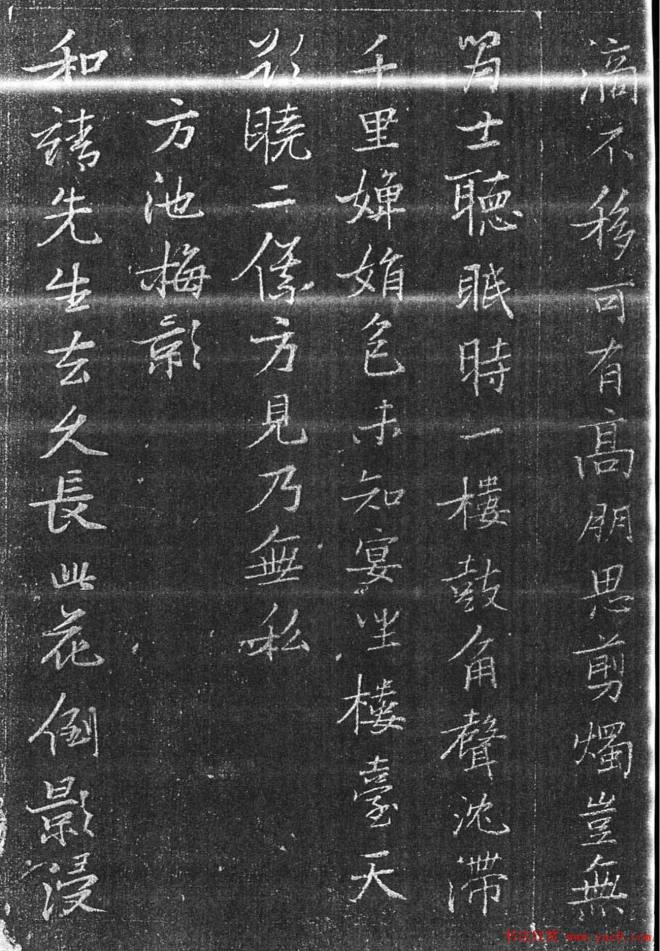 滴不移可有高朋思剪燭豈無
士聽眠時一樓鼓角聲沈滯
千里嬋娟色未知宴坐樓臺天
曉二儀方見乃無私
方池梅影
和靖先生去久長此花倒影浸
www.yac8.com